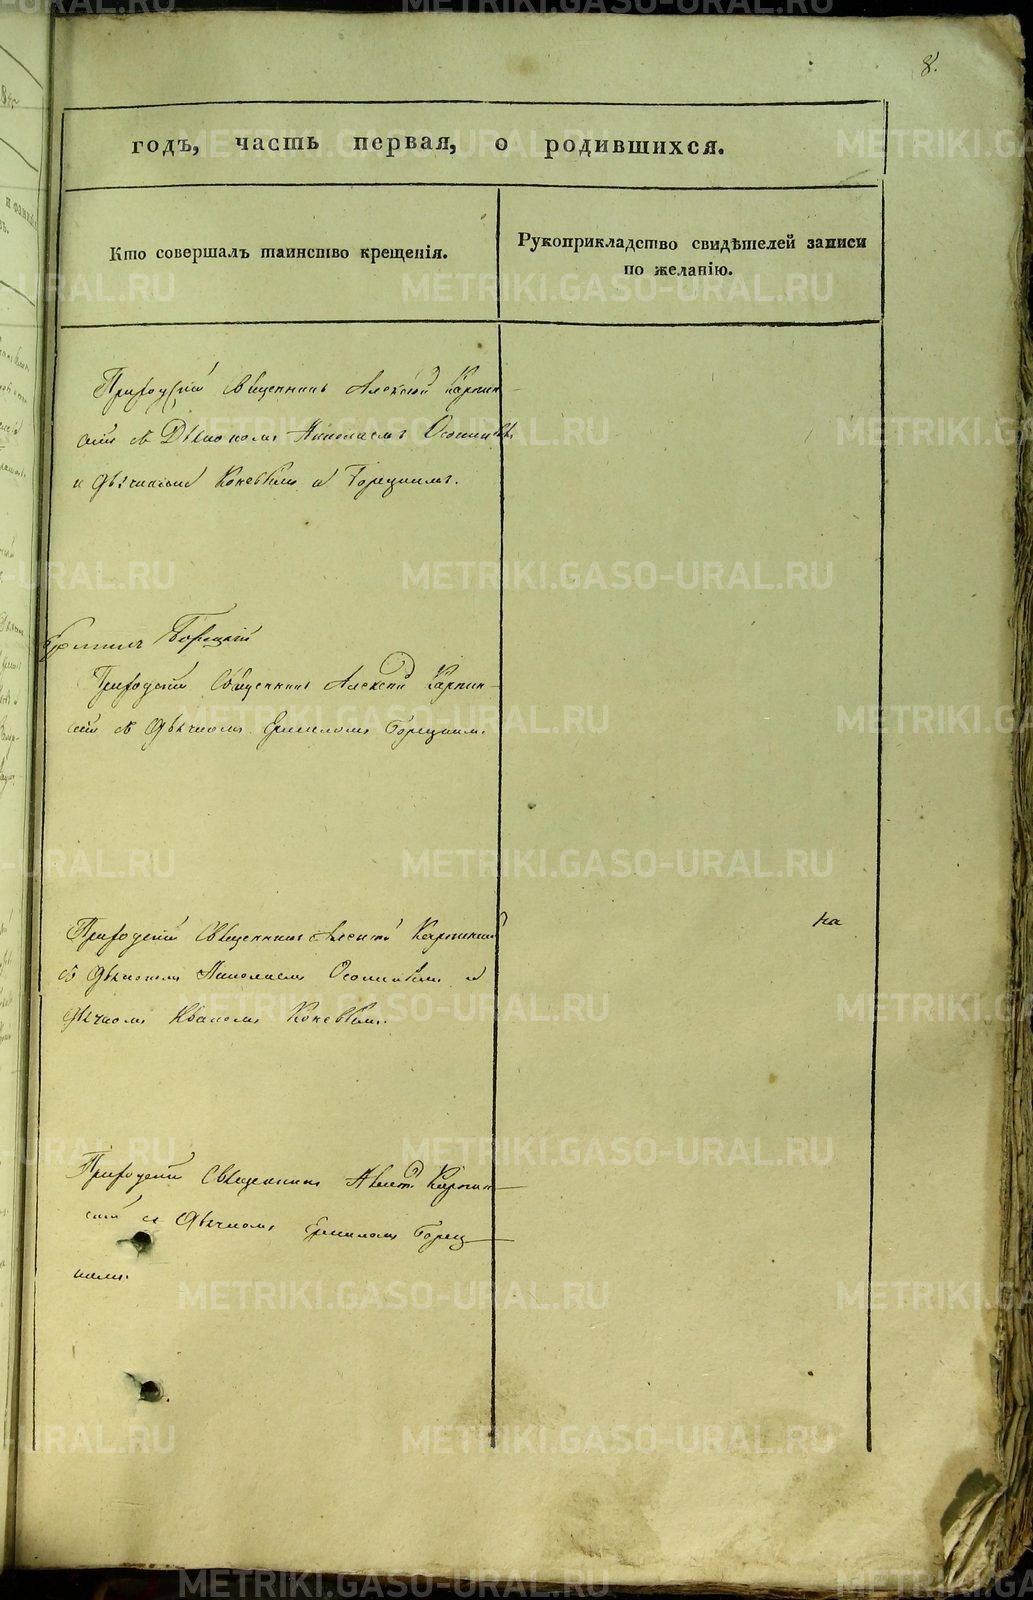 8.
годъ, часть первая, о родившихся.
Кто совершалъ таинство крещенія.
Рукоприкладство свидѣтелей записи
по желанію.
Приходскій Священникъ Алексѣй Карпин-
скій съ Діакономъ Николаемъ
и дьячками Коневымъ и Горецкимъ.
Горецкій
Приходскій Священникъ Алексѣй Карпин-
скій съ Дьячкомъ Ермиломъ Горецкимъ.
Приходскій Священникъ Алексѣй Карпинскій
съ Діакономъ Николаемъ и
дьячкомъ Иваномъ Коневымъ.
на
Приходскій Священникъ Алексѣй Карпин-
скій съ Дьячкомъ Ермиломъ Горец-
кимъ.
METRIKI.GASO-URAL.RU